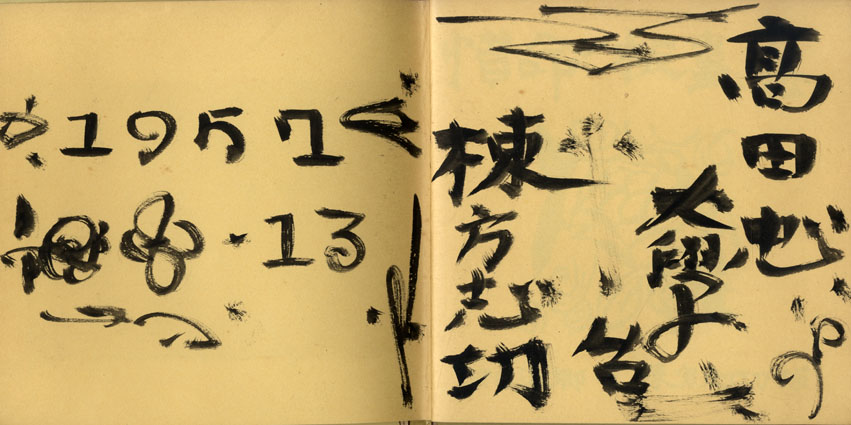 高田
大學
台
棟方志功
1957
8·13